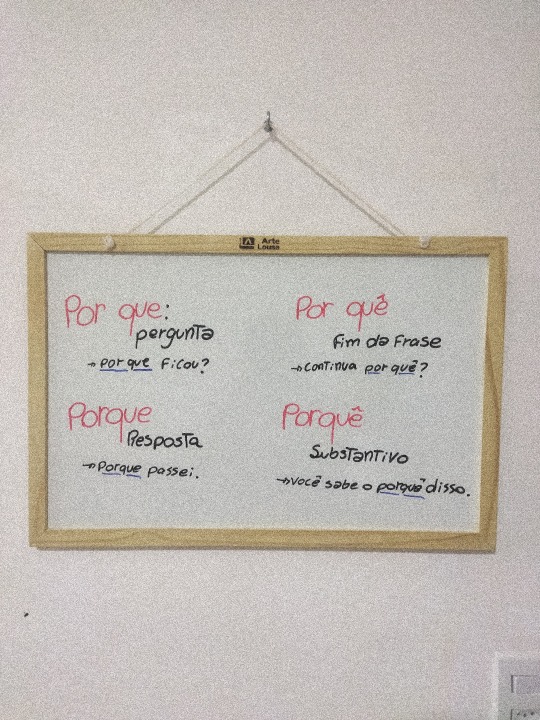 Arte
Lousa
Por que:
pergunta
→ por que Ficou?
Por quê
Fim da Frase
→ continua por quê?
Porque
Resposta
→ Porque passei.
Porquê
Substantivo
→ Você sabe o porquê disso.